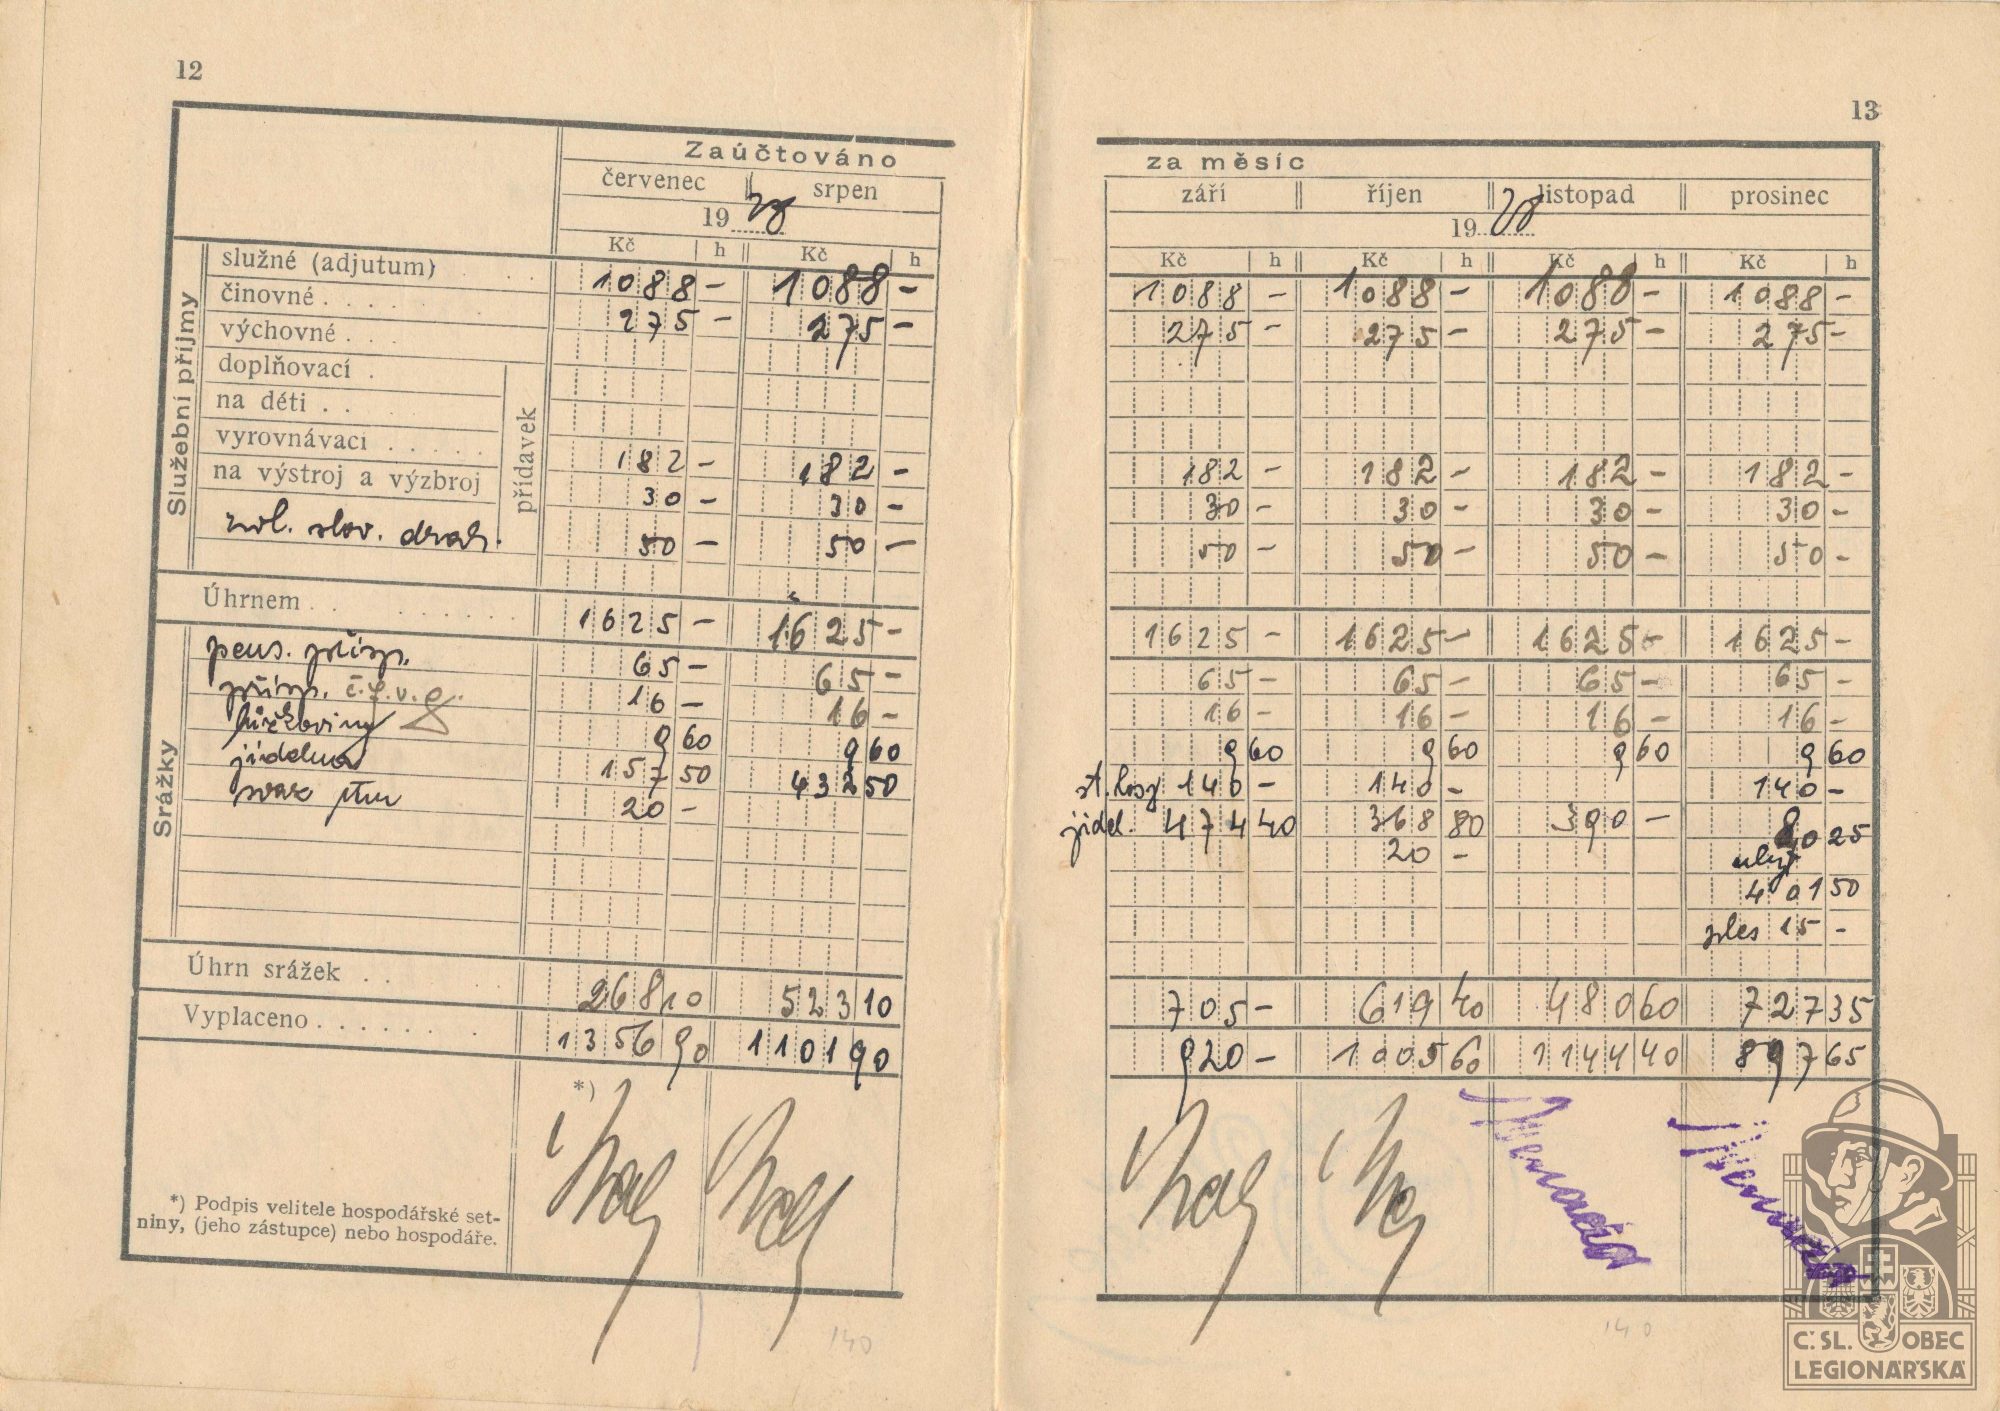 12
Zaúčtováno
červenec srpen
19 28
Kč h Kč h
Služební příjmy
služné (adjutum) . . . 1088 – 1088 –
činovné . . . . 275 – 275 –
výchovné . . .
přídavek
doplňovací .
na děti . .
vyrovnávací . . . . . 182 – 182 –
na výstroj a výzbroj 30 – 30 –
zvl. slov. drah. 50 – 50 –
Úhrnem . . . . . . . . 1625 – 1625 –
Srážky
pens. přísp. 65 – 65 –
přísp. 16 – 16 –
9 60 9 60
jídelna 157 50 432 50
svaz 20 –
Úhrn srážek . . . 268 10 523 10
Vyplaceno . . . . . . . 1356 90 1101 90
*)
*) Podpis velitele hospodářské set-
niny, (jeho zástupce) nebo hospodáře.
140
13
za měsíc
září říjen listopad prosinec
19 28
Kč h Kč h Kč h Kč h
1088 – 1088 – 1088 – 1088 –
275 – 275 – 275 – 275 –
182 – 182 – 182 – 182 –
30 – 30 – 30 – 30 –
50 – 50 – 50 – 50 –
1625 – 1625 – 1625 – 1625 –
65 – 65 – 65 – 65 –
16 – 16 – 16 – 16 –
9 60 9 60 9 60 9 60
140 – 140 – 140 –
jídel. 474 40 368 80 390 – 25
20 –
401 50
ples 15 –
705 – 619 40 480 60 727 35
920 – 1005 60 1144 40 897 65
140
Č.SL. OBEC
LEGIONÁŘSKÁ